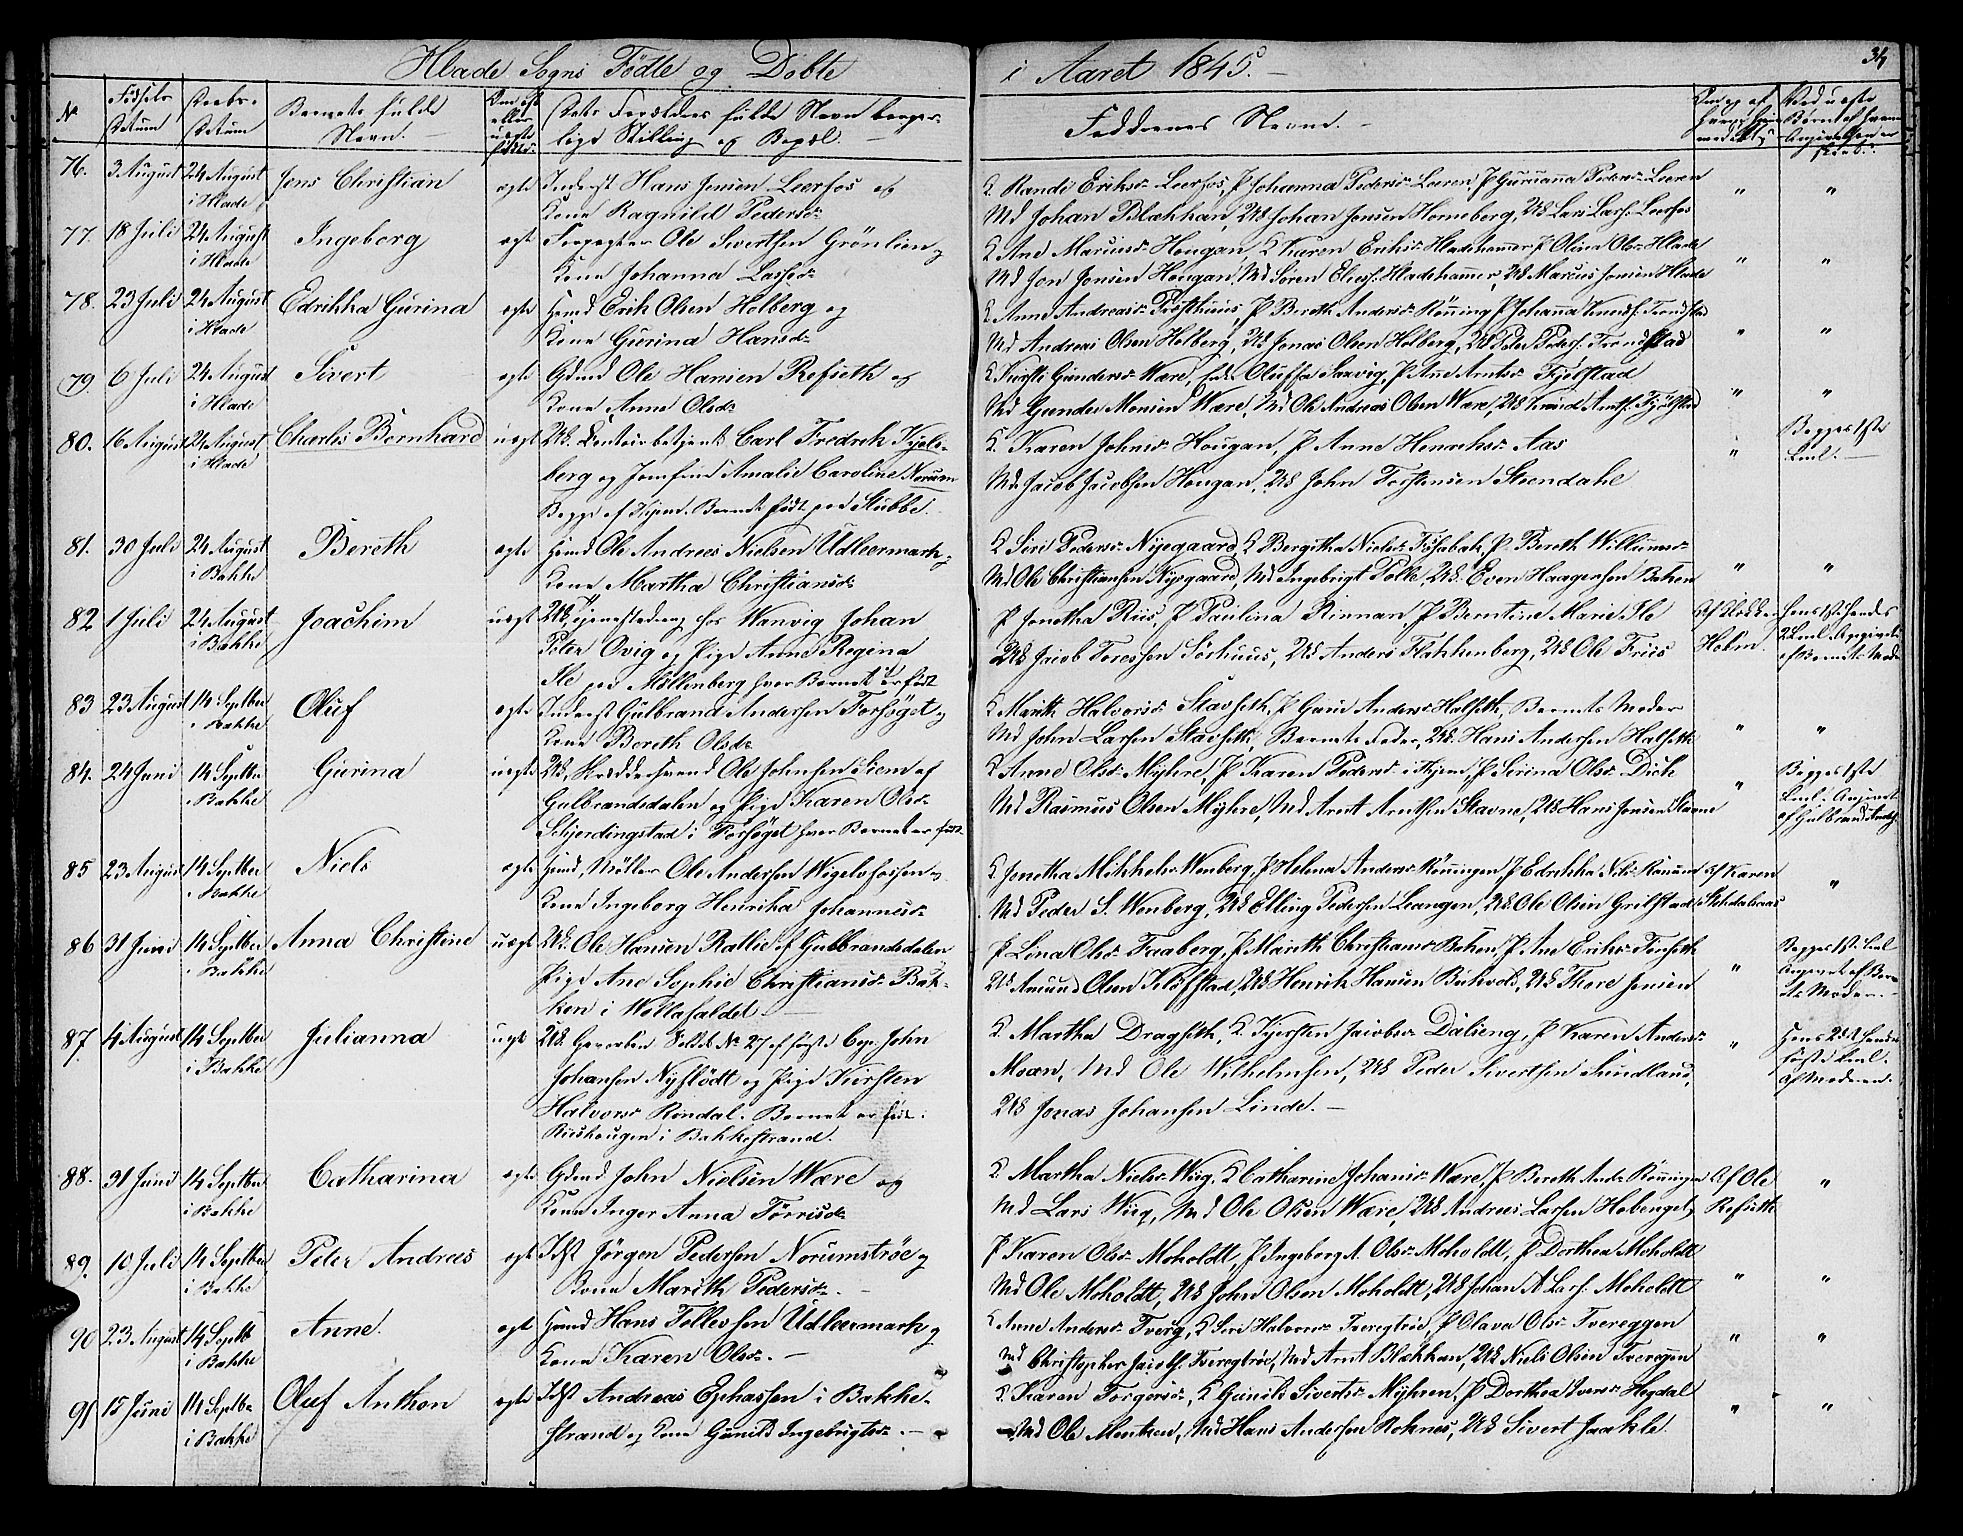 Hlade Sogns Fødte og Døbte i Aaret 1845.
34
No
Fødsels Datum
Daabs-Datum
Barnets fulde Navn.
Om ægte eller uægte født
Dets Forældres fulde Navn borgerlige Stilling og Bopæl.
Faddernes Navne.
76. 3 August 24 August i Hlade Jens Christian ægte Inderst Hans Jensen Leerfos og
Kone Ragnild Pedersd.
K Randi Eriksd. Leerfos, P Johanna Pedersd. Leeren P Gurianna Pedersd. Leeren
Md Johan Blækkan, UK Johan Jensen Horneberg, UK Lars Lars. Leerfos
77. 18 Juli 24 August i Hlade Ingeborg ægte Forpagter Ole Sivertsen Grönlien og
Kone Johanna Larsd.
K Ane Marcusd. Hougan, K Karen Eriksd. Hladehammer P Olina Olsd. Hlade
Md Jon Jensen Hougan, Md Søren Elies. Hladehammer, UK Marcus Jensen Hlade
78. 23 Juli 24 August i Hlade Edrikka Gurina ægte Huusmd Erik Olsen Holberg og
Kone Gurina Hansd.
K Anne Andreasd. Fröskhuus, P Bereth Andersd. Rönning P Johanna Knuds. Trondstad
Md Andreas Olsen Holberg, UK Jonas Olsen Holberg, UK Peder Peders. Trondstad
79. 6 Juli 24 August i Hlade Sivert ægte Gdmd Ole Hansen Refseth og
Kone Anne Olsd.
K Kirsti Gundersd. Være, Oluffa Saxvig, P Ane Arntsd. Fjölstad
Md Gunder Monsen Være, Md Ole Andreas Olsen Være, UK Knud Arnts. Fjölstad
80. 16 August 24 August i Hlade Charlis Bernhard uægt UK. Contoirbetjent Carl Fredrik Kjels-
berg og Jomfrue Amalie Caroline Norum
Begge af Thjem. Barnet født paa Stubbe.
K. Karen Johnsd. Hougan, P Anne Henriksd. Aas
Md Jacob Jacobsen Hougan, UK John Torstensen Steendahl
Begges 1ste Leil.
81. 30 Juli 24 August i Bakke Bereth ægte Huusmd Ole Andreas Nielsen Udleermark og
Kone Martha Christiansd.
K Siri Pedersd. Nyegaard, K Bergitha Nielsd. P. Bereth Willumsd.
Md Ole Christiansen Nyegaard, Md Ingebrigt Tolle, UK. Even Haagensen Bakken
82 1 Juli 24 August i Bakke Joachim uægt UK, tjenestedreng hos Wanvig Johan
Peter Ovig og Pige Anne Regina
Sle paa Möllenberg hvor Barnet er født
P Jonetha Riis, P Paulina Rinnan, P Berntine Marie Sle
UK Jacob Toresen Sörhuus, UK Anders Flakkenberg, UK Ole Friis
Af Klokker Holm.
Hans 1ste hendes 2 Leil. Angivet af Barnets Moder
83 23 August 14 Septber i Bakke Oluf ægte Inderst Gulbrand Andersen Forsöget og
Kone Bereth Olsd.
K Marith Halvorsd. Stavseth, P Guru Andersd. Halseth, Barnets Moder
Md John Larsen Stavseth, Barnets Fader, UK Hans Andersen Halseth
84. 24 Juni 14 Septber i Bakke Gurina uægte UK, Skræddersvend Ole Johnsen Siem af
Gulbrandsdalen og Pige Karen Olsd.
Schjerdingstad i Forsöget hvor Barnet er født
K Anne Olsd. Myhre, P Karen Pedersd. i Thjem, P Serina Olsd. Dick
Md Rasmus Olsen Myhre, Md Arnt Arntsen Stavne, UK Hans Jensen Stavne
Begges 1ste Leil. Angivet af Gulbrand Anders.
85 23 August 14 Septber i Bakke Niels ægte Huusmd, Möller Ole Andersen Wigelsfossen og
Kone Ingeborg Henrika Johannesd.
K Jonetha Mikkelsd. Wenberg, P Helena Andersd. Rönningen, P Edrikka Nils. Ranum
Md Peder S. Wenberg, UK Elling Pedersen Leangen, UK. Ole Olsen Grilstad
Af Karen Stokdalsaas
86 31 Juni 14 Septber i Bakke Anna Christine uægt UK. Ole Hansen Ratlie af Gulbrandsdalen
Pige Ane Sophie Christiansd. Bak-
ken i Wollafaldet.
P Lina Olsd. Faaberg, P Marith Christiansd. Bakken, P Ane Eriksd. Finseth
UK Amund Olsen Klöfstad, UK Henrik Hansen Bukvold, UK Thore Jensen
Begges 1ste Leil Angivet af Barnets Moder.
87. 4 August 14 Septber i Bakke Julianna uægt UK. Gevorben Soldat No 27 af første Cmp. John
Johansen Nyflödt og Pige Kirsten
Halvorsd Rindal. Barnet er født i
Riishougen i Bakkestrand.
K. Martha Dragseth, K. Kjersten Jacobsd. Dalseng, P Karen Andersd.
Moan, Md Ole Wilhelmsen, UK Peder Sivertsen Sundland,
UK Jonas Johansen Linde.
Hans 2det hendes første Leil. Af Moderen.
88. 31 Juni 14 Septber i Bakke Catharina ægte Gdmd John Nielsen Være og
Kone Inger Anna Törrisd.
K Martha Nielsd. Wiig, K Catharine Johansd. Være, P Bereth And. Rönningen
Md Lars Wiig, Md Ole Olsen Være, UK Andreas Larsen Hobenget
Af Ole Refseth
89. 10 Juli 14 Septber i Bakke Peter Andreas ægt Idst Jörgen Pedersen Norumströe og
Kone Marith Pedersd.
P Karen Olsd. Moholdt, P Ingeborg A. Olsd. Moholdt, P Dorthea Moholdt
Md Ole Moholdt, UK John Olsen Moholdt, UK Johan A Lars. Moholdt
90 23 August 14 Septb i Bakke Anne. ægt Huusmd Hans Tollevsen Udleermark og
Kone Karen Olsd.
K Anne Andersd. Tverg, K Siri Halvorsd. Tveregtröe, P Olava Olsd. Tvereggen
Md Christopher Jacobs. Tveregtröe, Md Arnt Blækkan, UK Niels Olsen Tvereggen
91 15 Juni 14 Septbr i Bakke Oluf Anthon ægte Idst Andreas Ephassen i Bakke-
strand og Kone Gunild Ingebrigtsd.
K Karen Torgersd., K Gunild Sivertsd. Myhren, P Dorthea Iversd. Hegdal
Md Ole Mentzen, Md Hans Andersen Roknes, UK Sivert Jaakle.